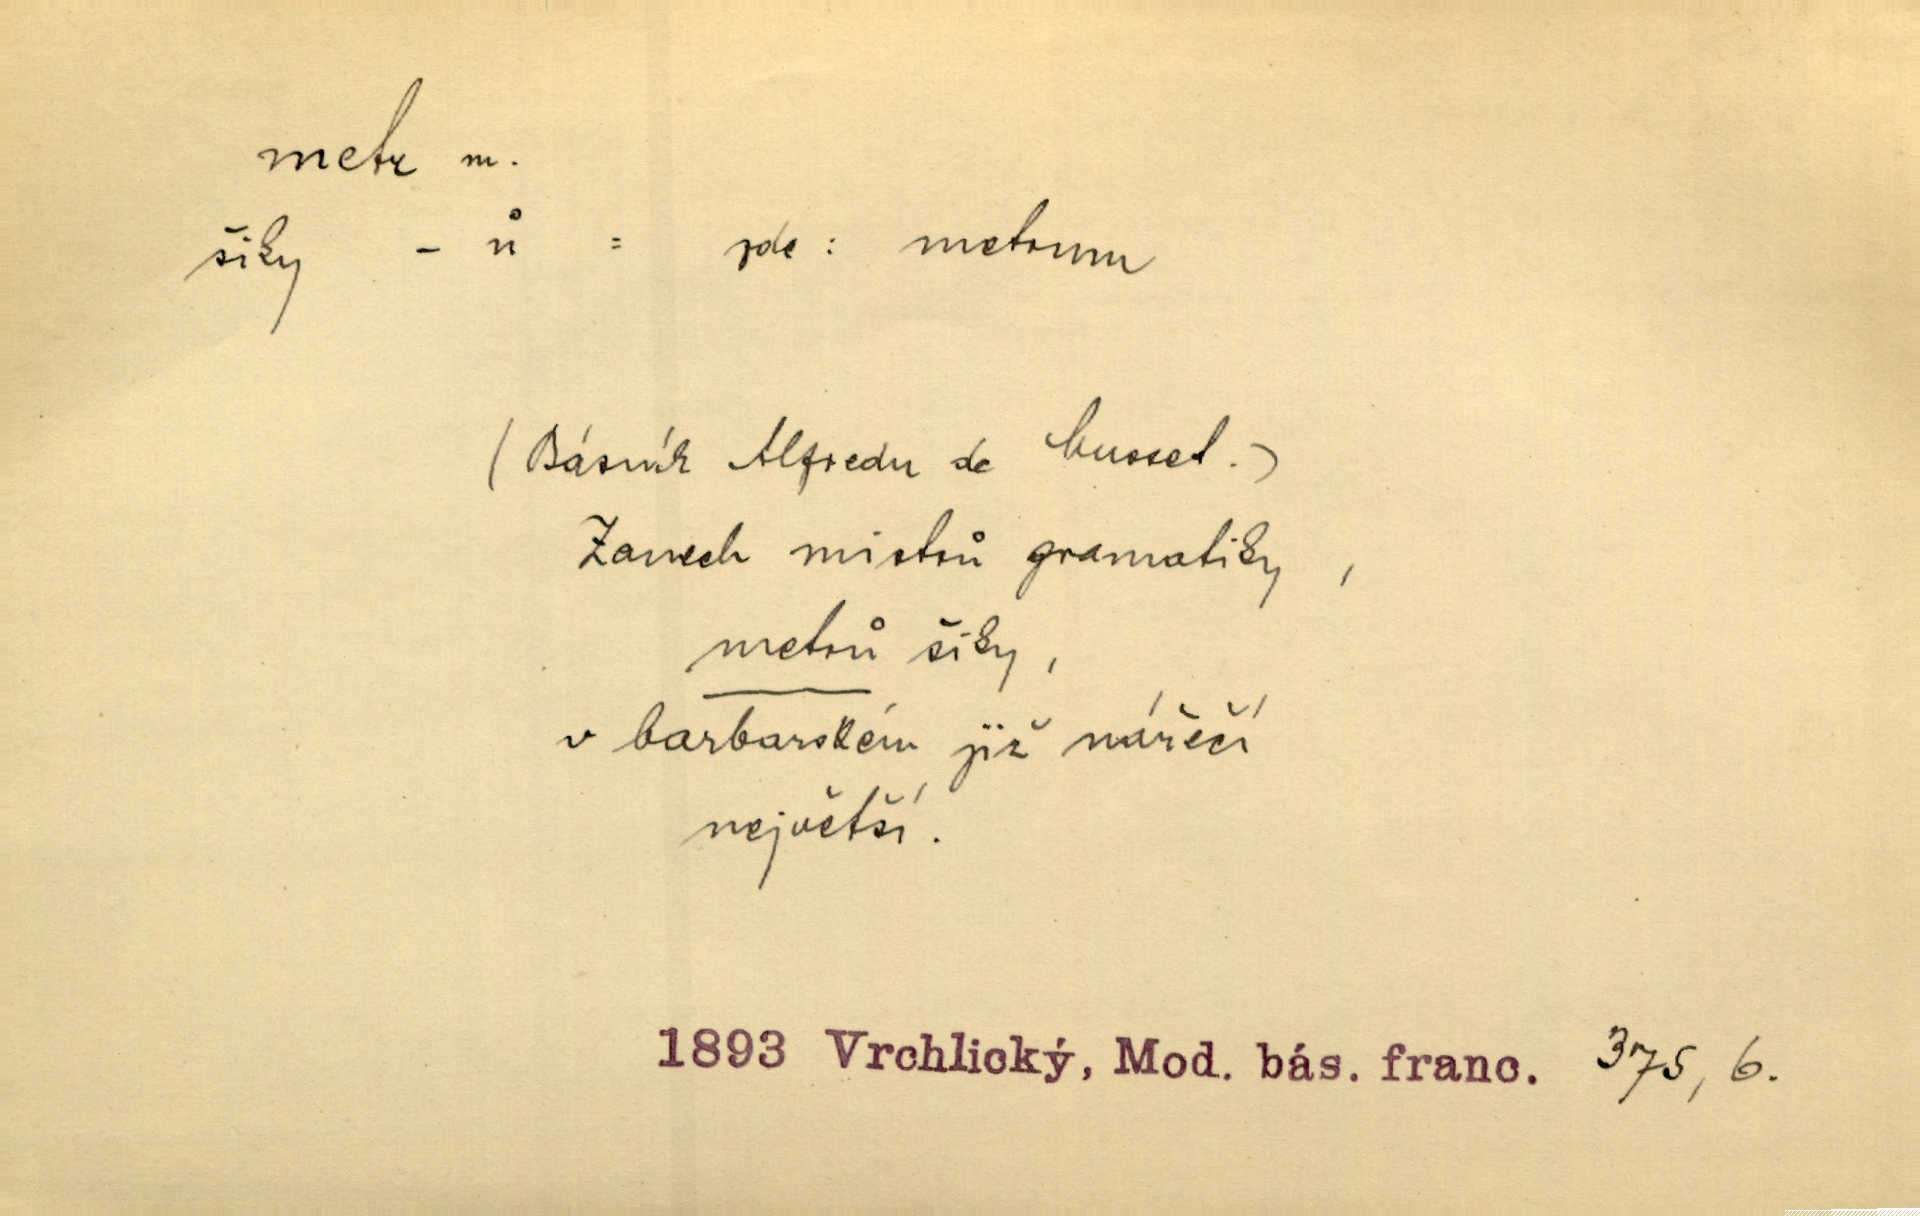 metr m.
šiky - ů = zde : metrum
(Básník Alfredu de Musset.)
Zanech mistrů gramatiky,
metrů šiky,
v barbarském již nářečí
největší.
1893 Vrchlický, Mod. bás. franc. 375, 6.